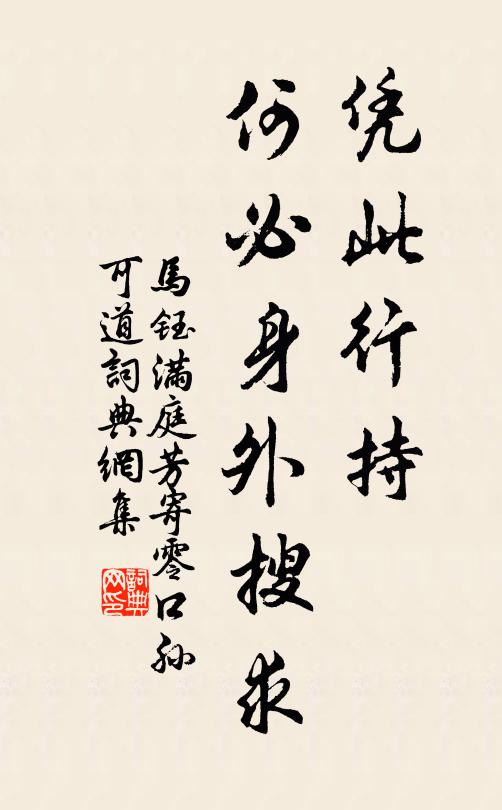 凭此行持
何必身外搜求
馬鈺满庭芳寄零口孙
可道詞典網集
詞典
网印